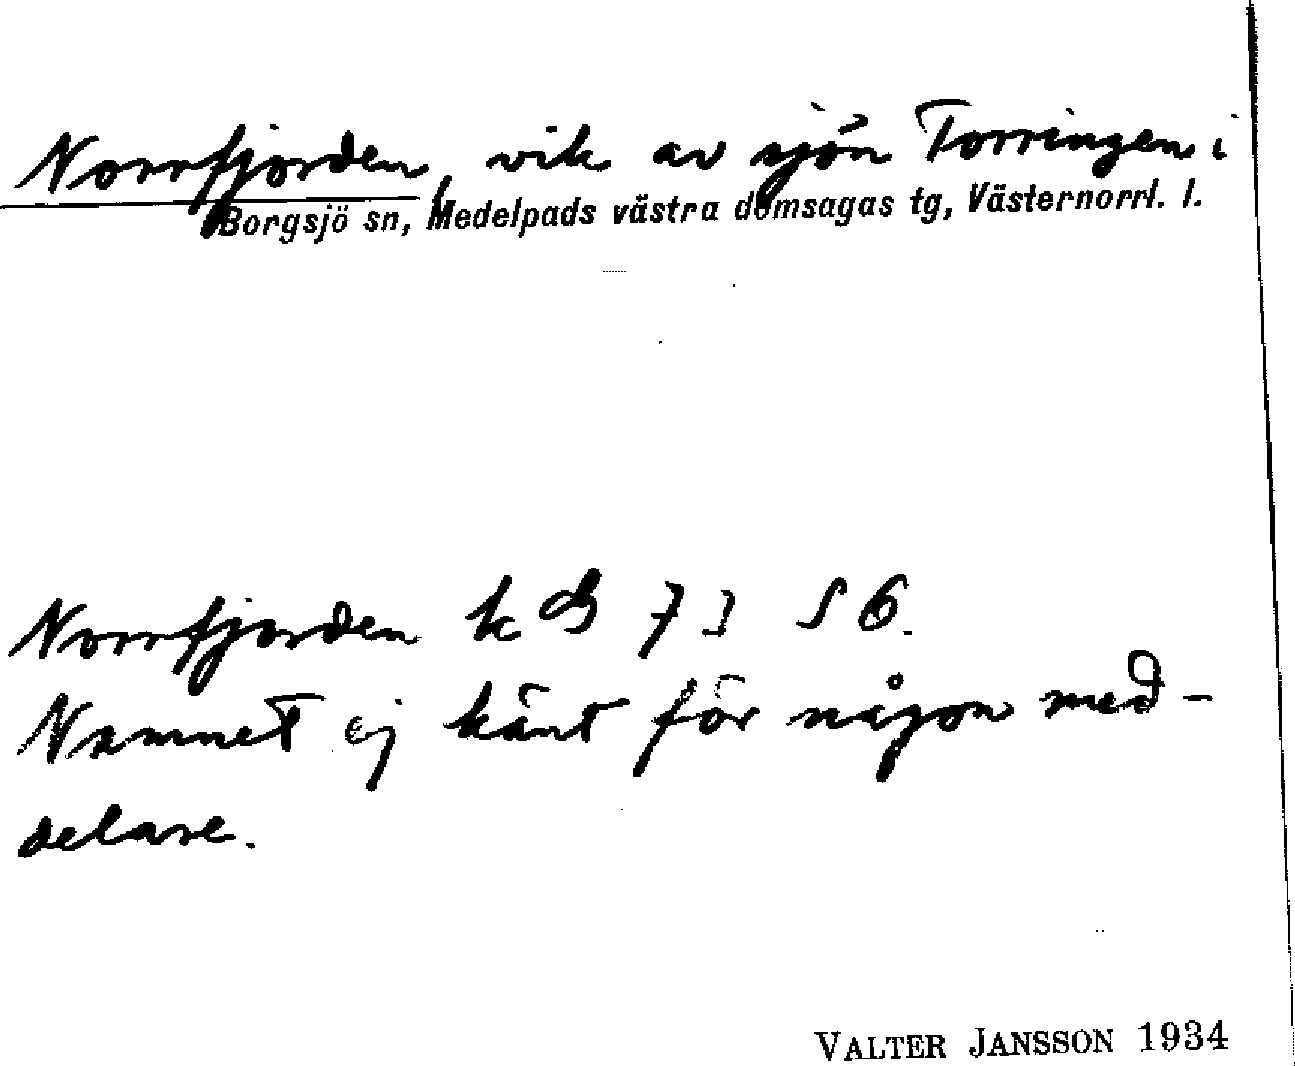 Norrfjorden, vik av sjön Torringen i
Borgsjö sn, Medelpads västra domsagas tg, Västernorrl. l.
Norrfjorden k B 73 S 6.
Namnet ej känt för någon med-
delare.
VALTER JANSSON 1934